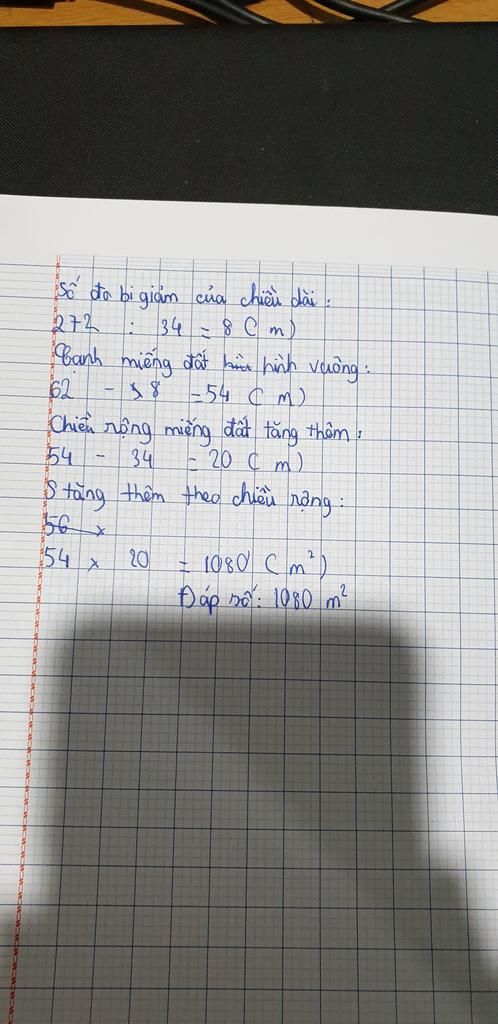 Số đo bị giảm của chiều dài :
272 : 34 = 8 ( m )
Cạnh miếng đất hình vuông :
62 - 8 = 54 ( m )
Chiều rộng miếng đất tăng thêm :
54 - 34 = 20 ( m )
S tăng thêm theo chiều rộng :
56 x
54 x 20 = 1080 ( m² )
Đáp số : 1080 m²